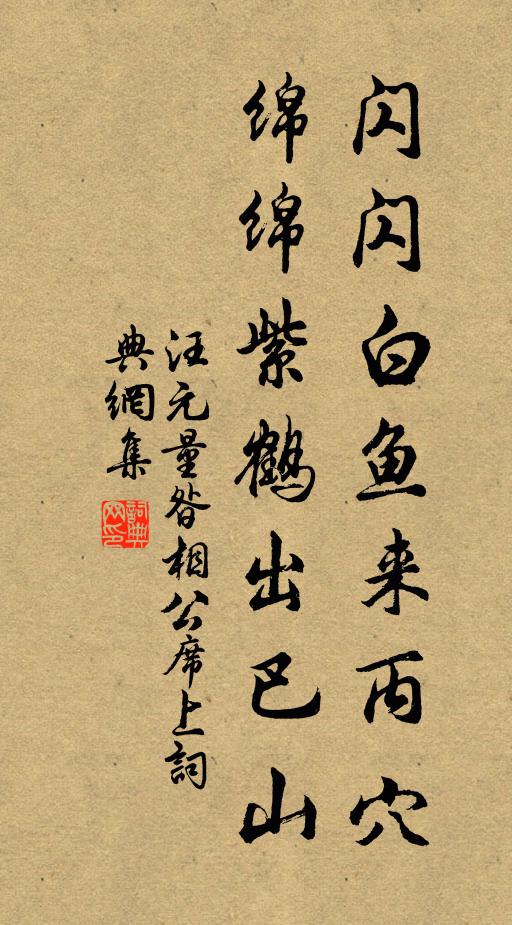 闪闪白鱼来丙穴
绵绵紫鹤出巴山
汪元量昝相公席上詞
典網集
詞典網印